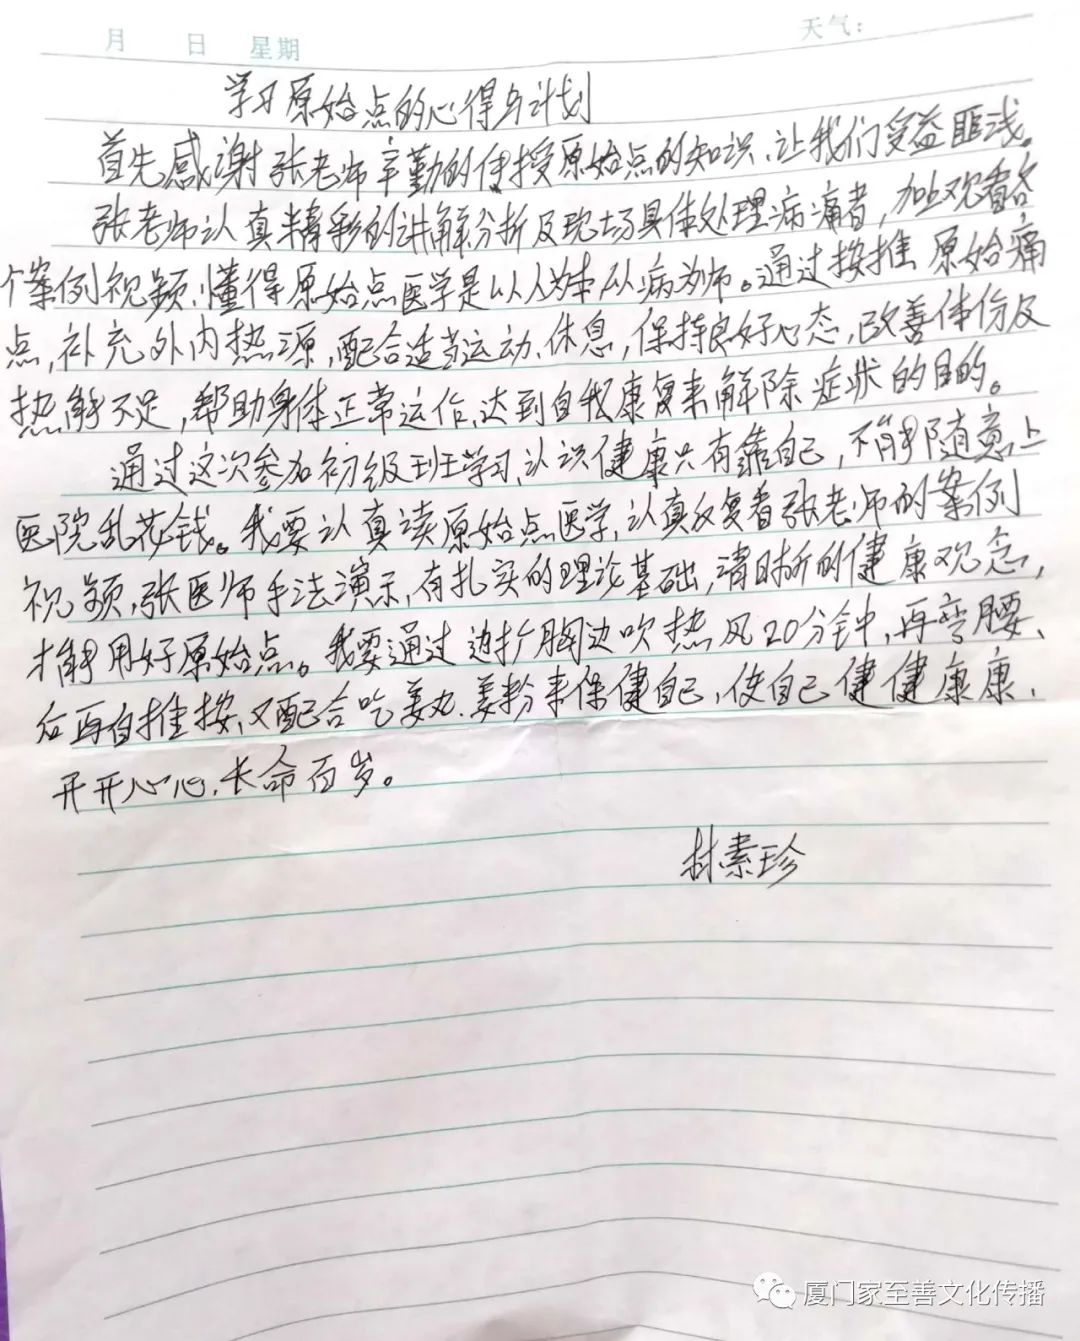 月 日 星期 天气：
学习原始点的心得与计划
首先感谢张老师辛勤的传授原始点的知识、让我们受益匪浅。
张老师认真精彩的讲解分析及现场具体处理病痛者，加上观看各
个案例视频，懂得原始点医学是以人为本从病为师。通过按推原始痛
点，补充外内热源，配合适当运动、休息，保持良好心态，改善体份及
热能不足，帮助身体正常运作，达到自我康复来解除症状的目的。
通过这次参加初级班学习，认识健康只有靠自己，不能随意上
医院乱花钱。我要认真读原始点医学，认真反复看张老师的案例
视频，张医师手法演示，有扎实的理论基础，清晰的健康观念，
才能用好原始点。我要通过边扩胸边吹热风20分钟，再弯腰、
后再自推按，又配合吃姜丸、姜粉来保健自己，使自己健健康康、
开开心心，长命百岁。
林素珍
厦门家至善文化传播